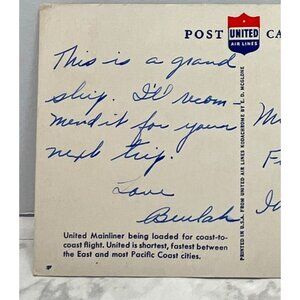 POST CA
UNITED
AIR LINES
This is a grand
ship. I'll recom-
mend it for your
next trip.
Love
Beulah
United Mainliner being loaded for coast-to-
coast flight. United is shortest, fastest between
the East and most Pacific Coast cities.
PRINTED IN U.S.A. FROM UNITED AIR LINES KODACHROME BY E. D. MCGLONE